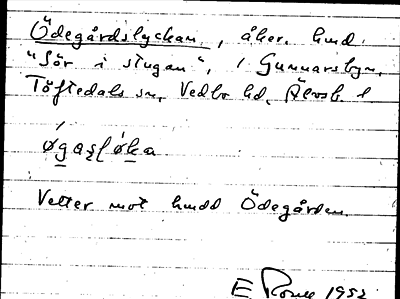 Ödegårdslyckan, åker, hmd.
"Sör i stugan", i Gunnarsbyn,
Töftedals sn, Vedbo hd, Älvsb. l
øgaslǿka
Vetter mot hmdd Ödegården.
E 1952